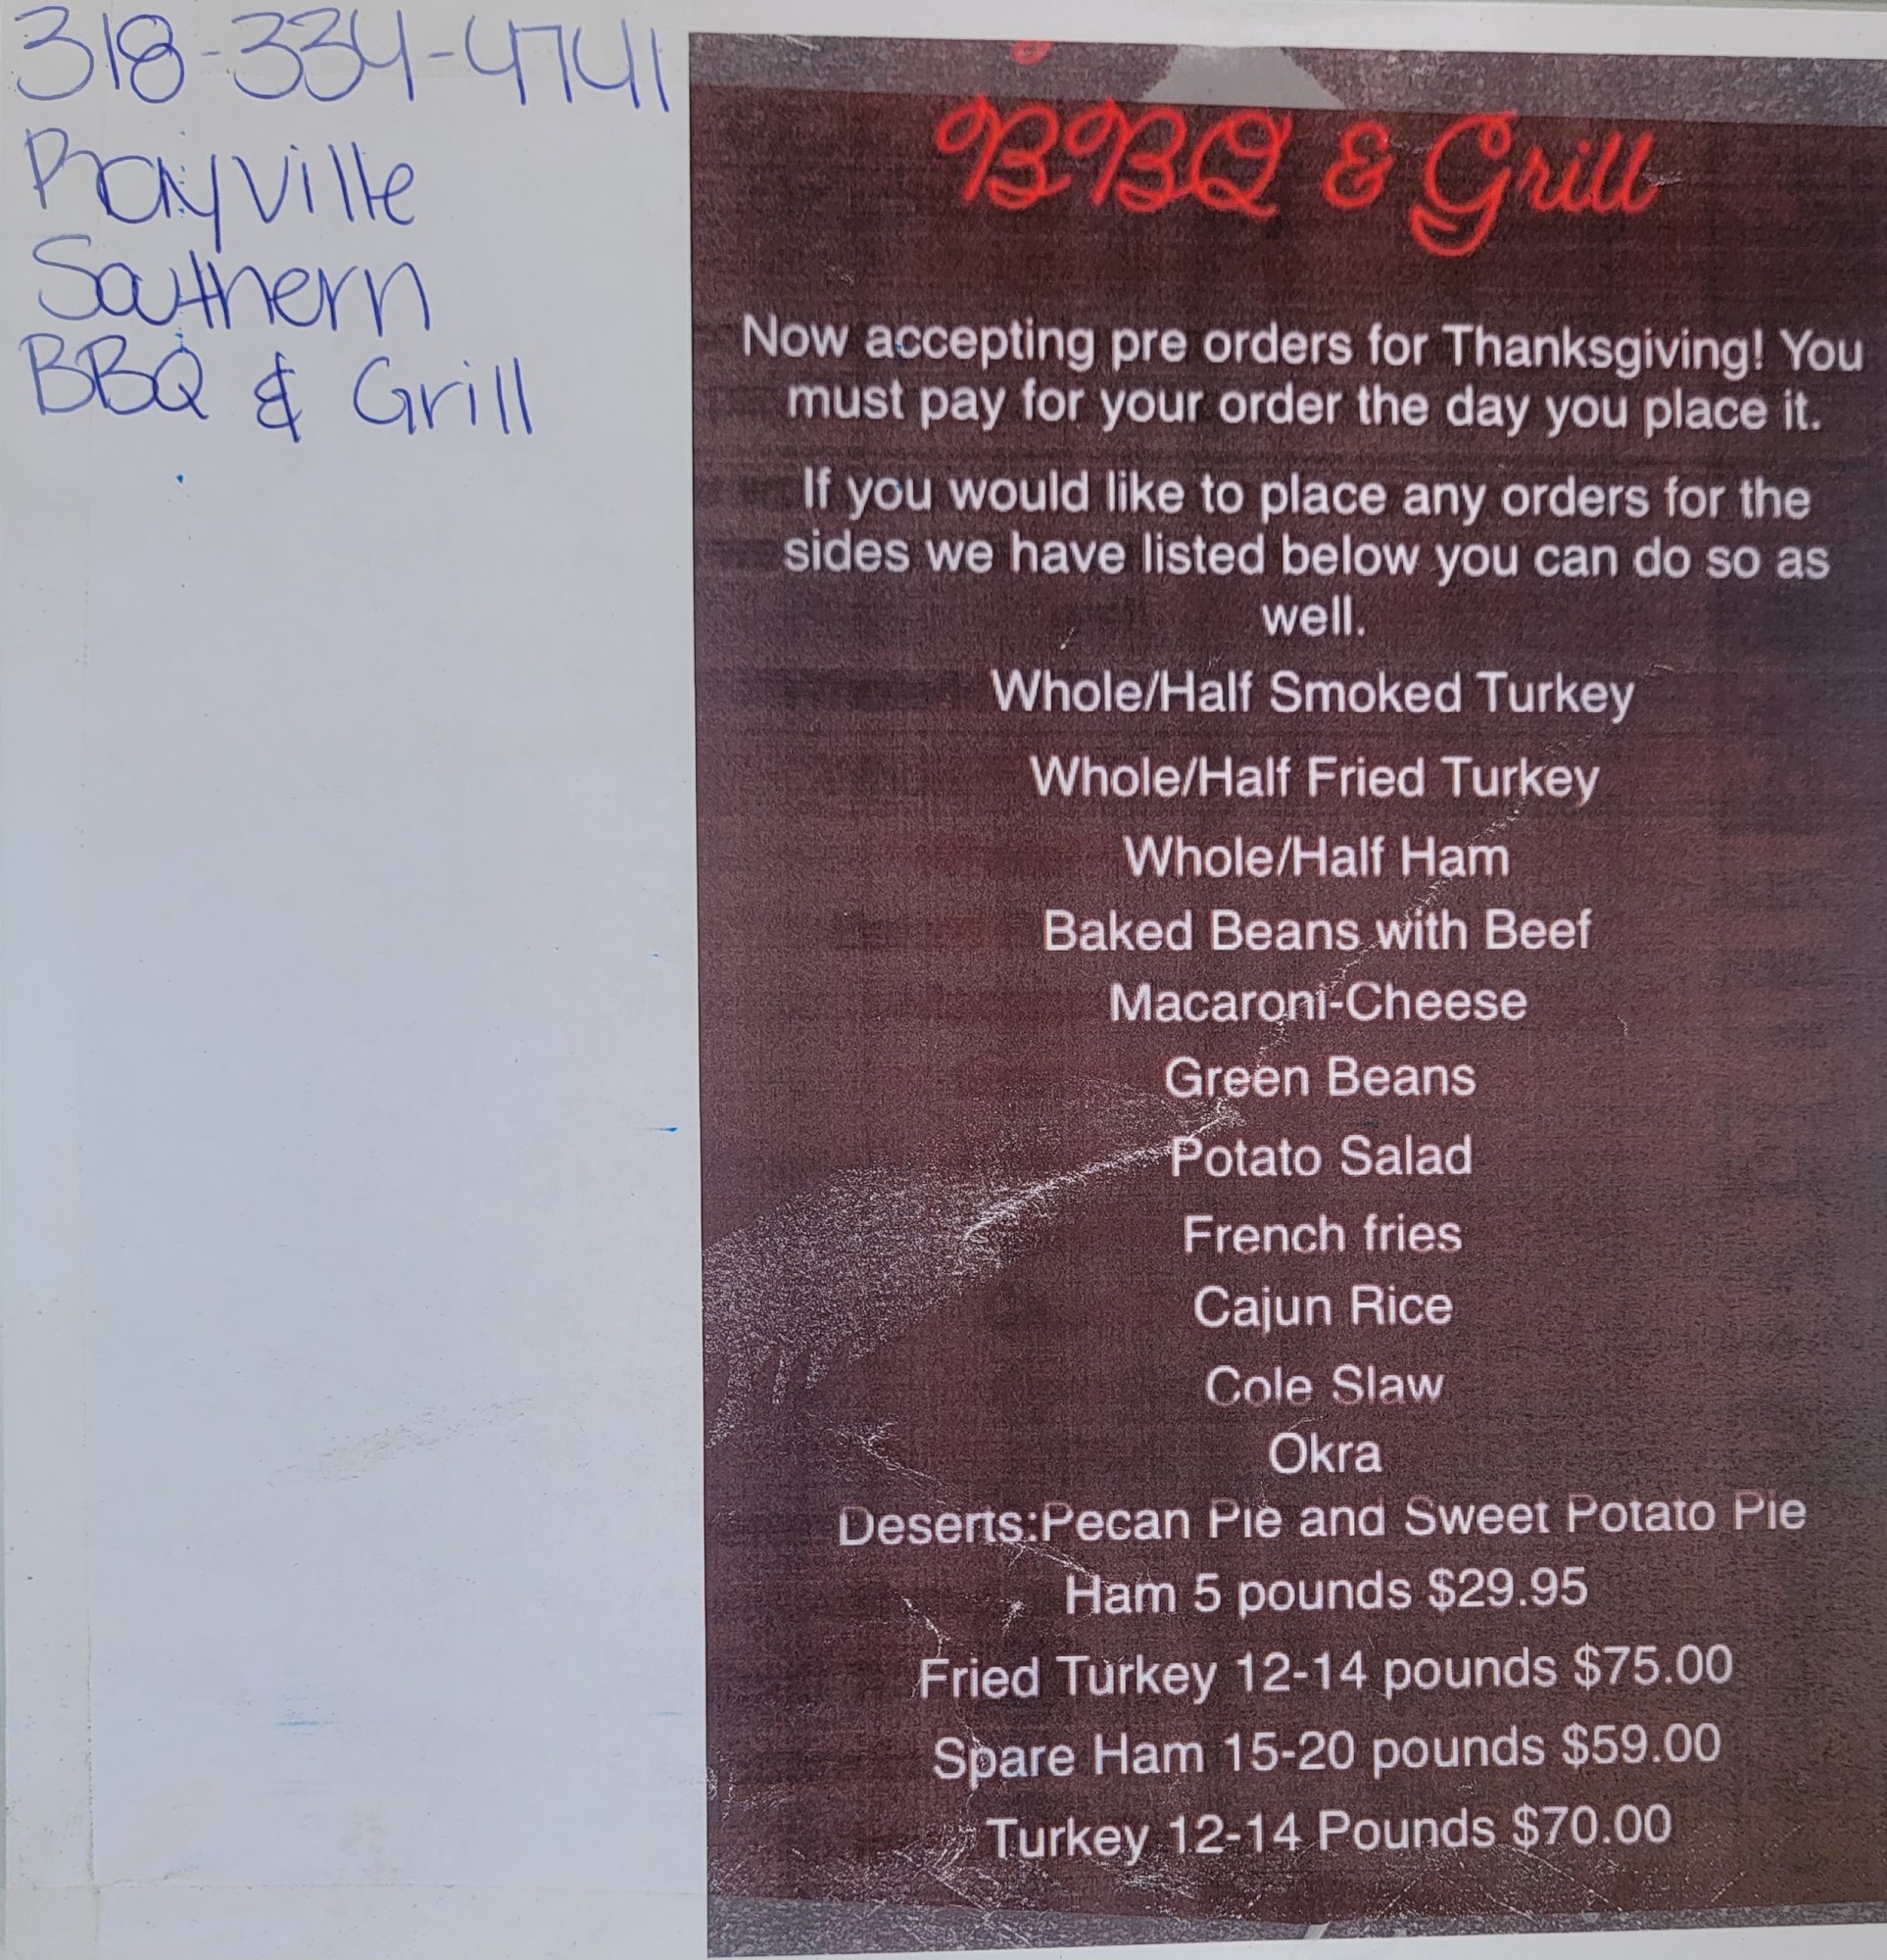 318-334-4741
Rayville
Southern
BBQ & Grill
BBQ & Grill
Now accepting pre orders for Thanksgiving! You
must pay for your order the day you place it.
If you would like to place any orders for the
sides we have listed below you can do so as
well.
Whole/Half Smoked Turkey
Whole/Half Fried Turkey
Whole/Half Ham
Baked Beans with Beef
Macaroni-Cheese
Green Beans
Potato Salad
French fries
Cajun Rice
Cole Slaw
Okra
Deserts:Pecan Pie and Sweet Potato Pie
Ham 5 pounds $29.95
Fried Turkey 12-14 pounds $75.00
Spare Ham 15-20 pounds $59.00
Turkey 12-14 Pounds $70.00